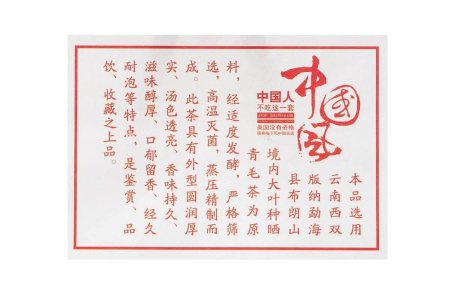 中國风
中国人
不吃这一套
美国没有资格
本品选用
云南西双
版纳勐海
县布朗山
境内大叶种晒
青毛茶为原
料，经适度发酵，严格筛
选，高温灭菌，蒸压精制而
成。此茶具有外型圆润厚
实、汤色透亮、香味持久、
滋味醇厚、口郁留香、经久
耐泡等特点，是鉴赏、品
饮、收藏之上品。